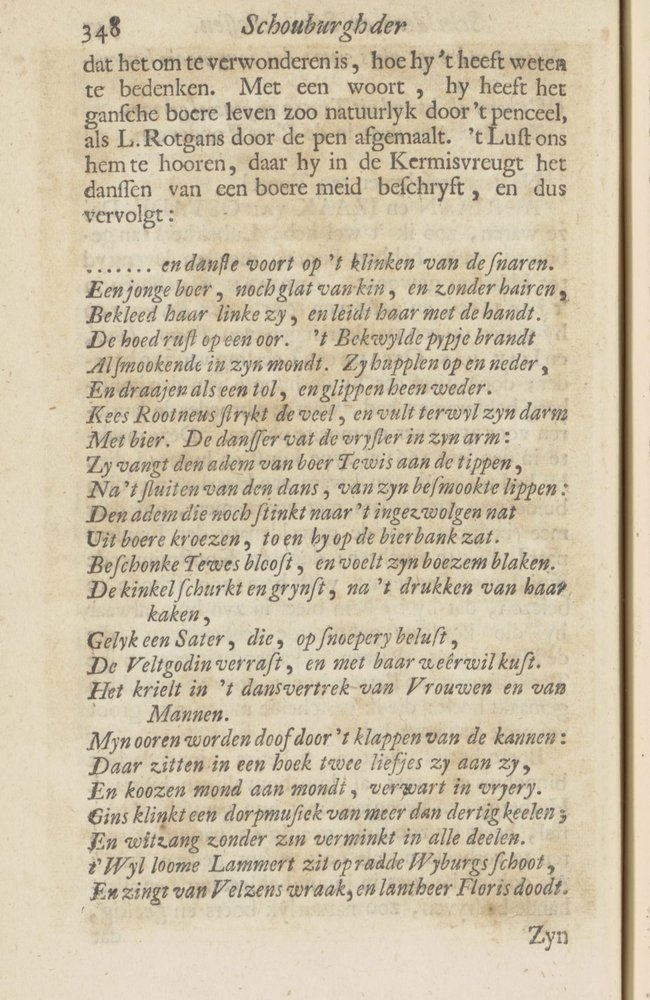 348 Schouburgh der
dat het om te verwonderen is, hoe hy 't heeft weten
te bedenken. Met een woort, hy heeft het
ganſche boere leven zoo natuurlyk door 't penceel,
als L. Rotgans door de pen afgemaalt. 't Luſt ons
hem te hooren, daar hy in de Kermisvreugt het
danſſen van een boere meid beſchryft, en dus
vervolgt:
....... en danſte voort op 't klinken van de ſnaren.
Een jonge boer, noch glat van kin, en zonder hairen,
Bekleed haar linke zy, en leidt haar met de handt.
De hoed ruſt op een oor. 't Bekwylde pypje brandt
Al ſmookende in zyn mondt. Zy hupplen op en neder,
En draajen als een tol, en glippen heen weder.
Kees Rootneus ſtrykt de veel, en vult terwyl zyn darm
Met bier. De danſſer vat de vryſter in zyn arm:
Zy vangt den adem van boer Tewis aan de tippen,
Na 't ſluiten van den dans, van zyn beſmookte lippen:
Den adem die noch ſtinkt naar 't ingezwolgen nat
Uit boere kroezen, to en hy op de bierbank zat.
Beſchonke Tewes blooſt, en voelt zyn boezem blaken.
De kinkel ſchurkt en grynſt, na 't drukken van haar
kaken,
Gelyk een Sater, die, op ſnoepery beluſt,
De Veltgodin verraſt, en met haar weêrwil kuſt.
Het krielt in 't dansvertrek van Vrouwen en van
Mannen.
Myn ooren worden doof door 't klappen van de kannen:
Daar zitten in een hoek twee liefjes zy aan zy,
En koozen mond aan mondt, verwart in vryery.
Gins klinkt een dorpmuſiek van meer dan dertig keelen;
En witzang zonder zin verminkt in alle deelen.
t' Wyl loome Lammert zit op radde Wyburgs ſchoot,
En zingt van Velzens wraak, en lantheer Floris doodt.
Zyn